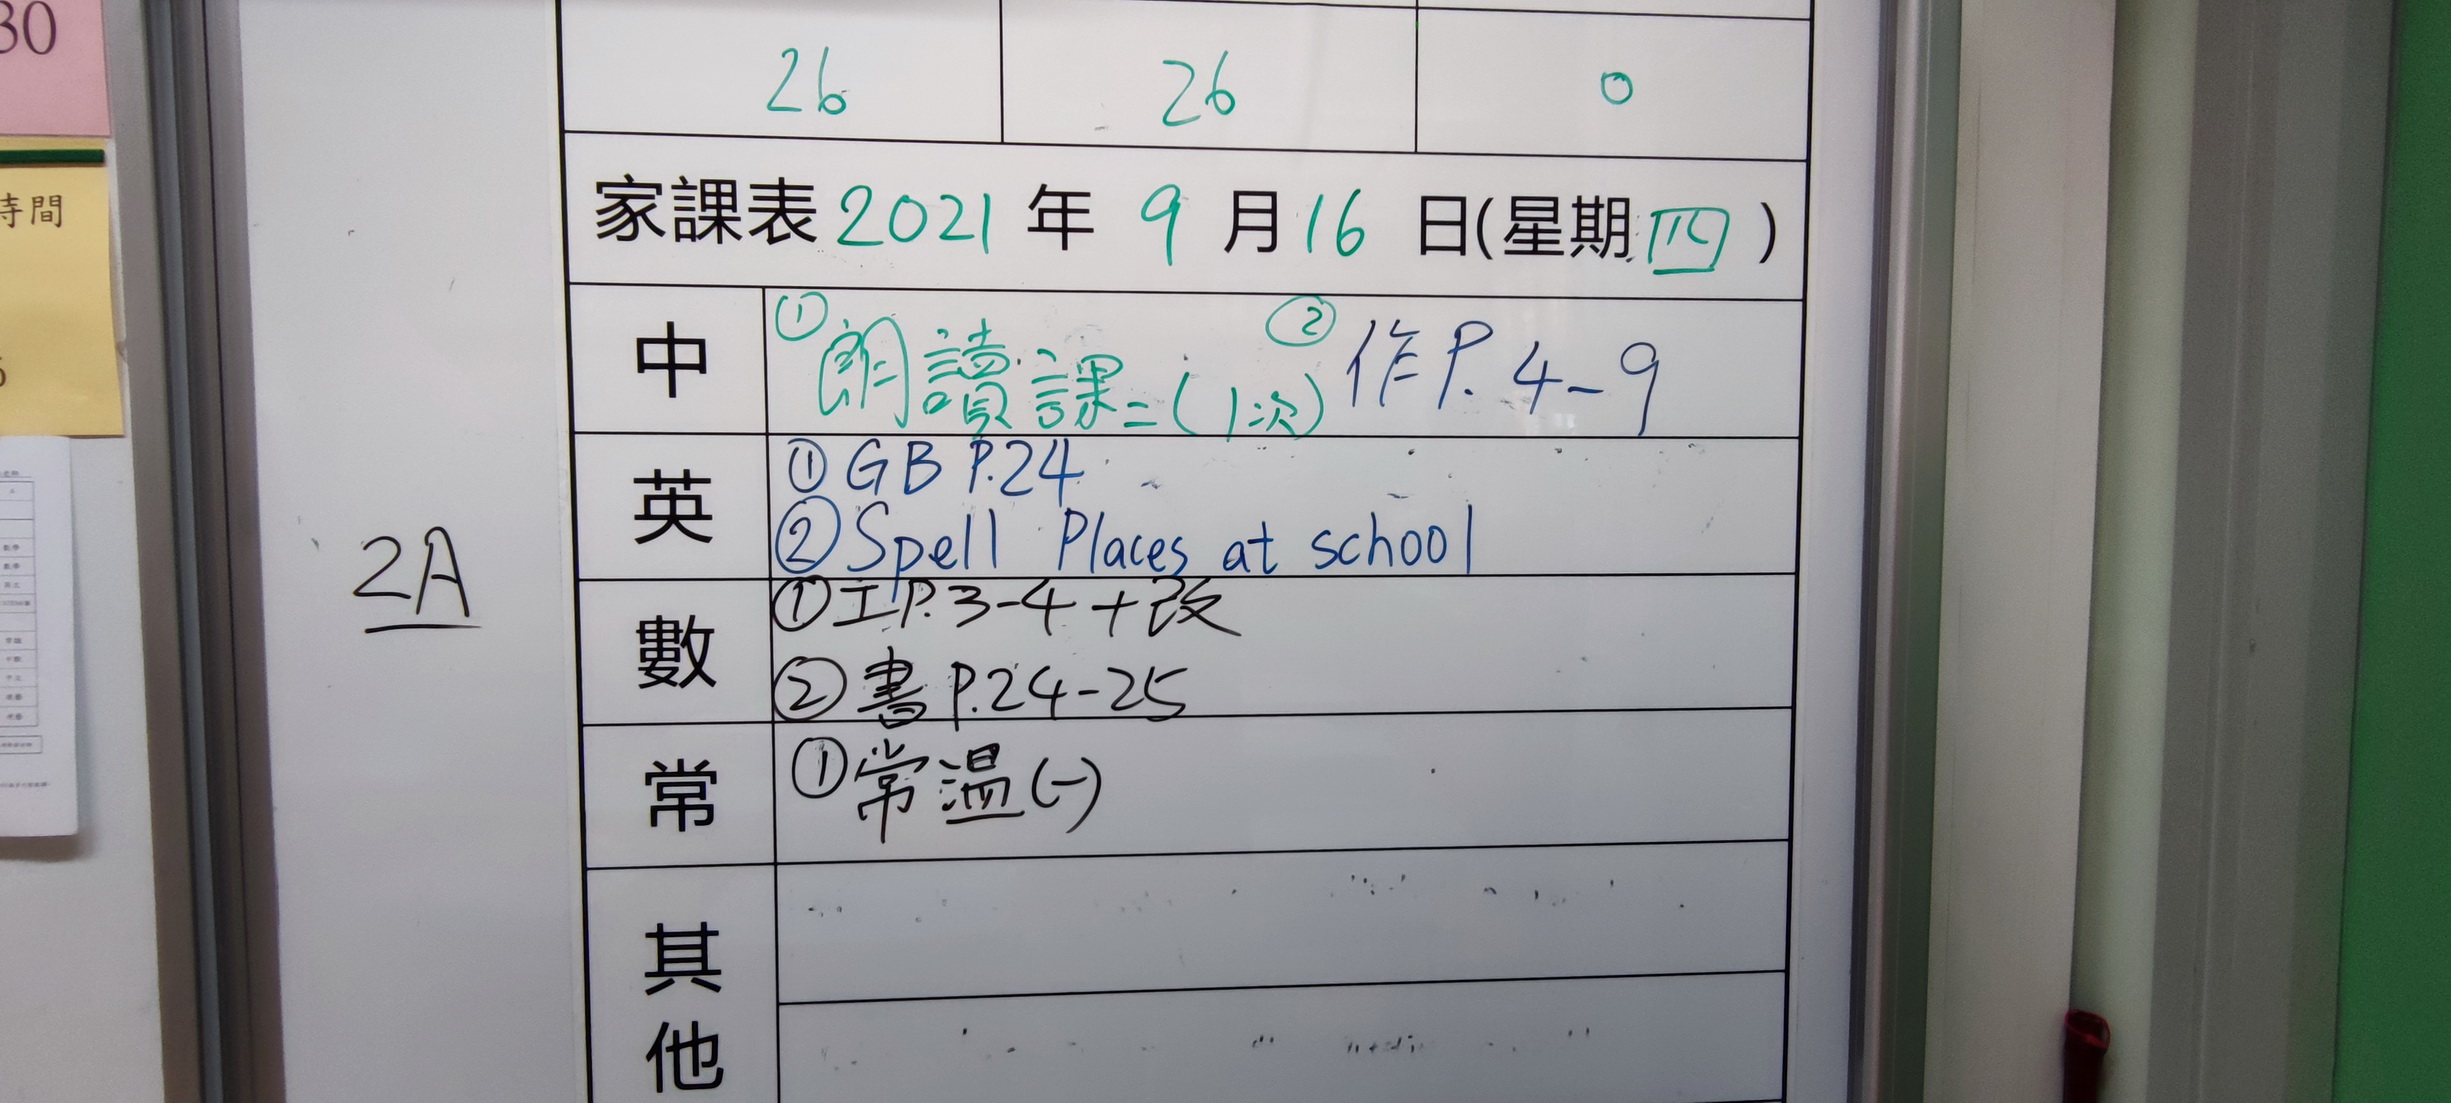 30
時間
26 26 0
家課表 2021 年 9 月 16 日(星期 四 )
中 ① 朗讀課二(1次) ② 作P.4-9
英 ① GB P.24
② Spell Places at school
2A
數 ① 工P.3-4+改
② 書P.24-25
常 ① 常溫(一)
其他